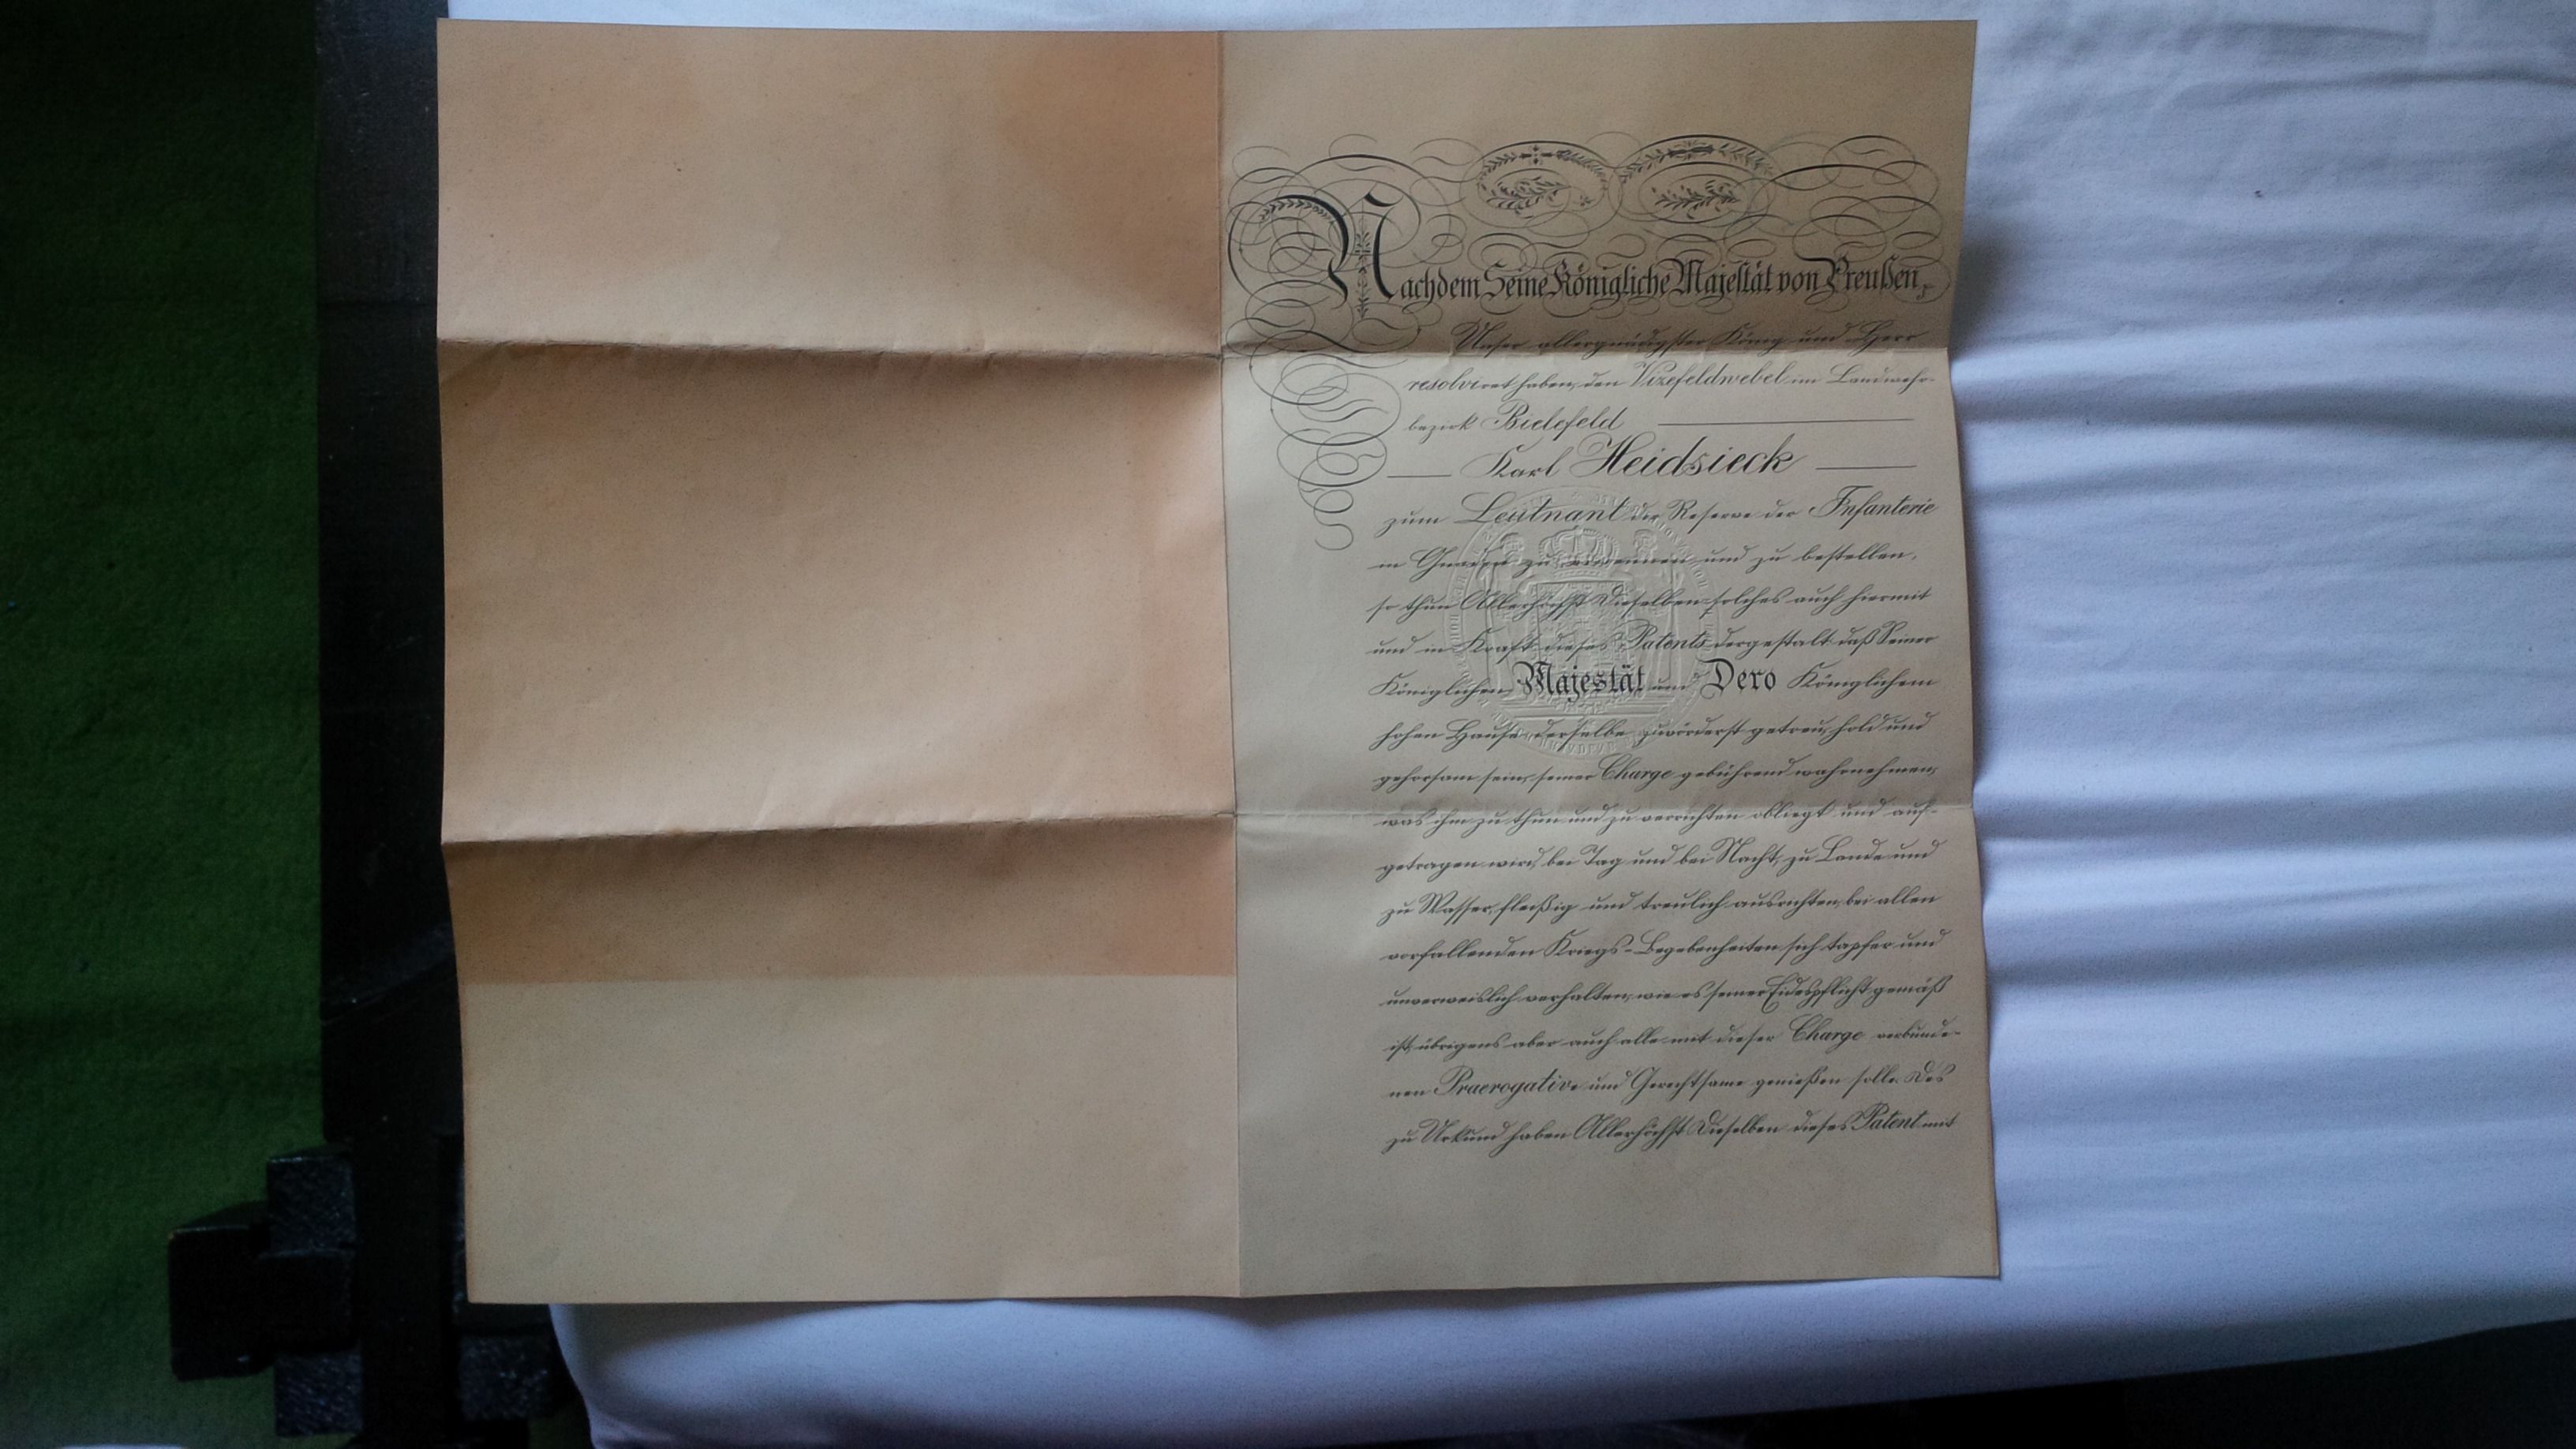 Nachdem Seine Königliche Majestät von Preußen,
Unser allergnädigster König und Herr
resolviret haben, den Vizefeldwebel im Landwehr-
bezirk Bielefeld
Karl Heidsieck
zum Leutnant der Reserve der Infanterie
in Gnaden zu ernennen und zu bestellen,
so thun Allerhöchst Dieselben solches auch hiermit
und in Kraft dieses Patents dergestalt, daß Seiner
Königlichen Majestät und Dero Königlichem
hohen Hause derselbe zuvörderst getreu, hold und
gehorsam sein, seiner Charge gebührend wahrnehmen,
was ihm zu thun und zu verrichten obliegt und auf-
getragen wird, bei Tag und bei Nacht, zu Lande und
zu Wasser, fleißig und treulich ausrichten, bei allen
vorfallenden Kriegs-Begebenheiten sich tapfer und
unverweislich verhalten, wie es seiner Eidespflicht gemäß
ist, übrigens aber auch alle mit dieser Charge verbunde-
nen Praerogative und Gerechtsame genießen solle. Des
zu Urkund haben Allerhöchst Dieselben dieses Patent mit